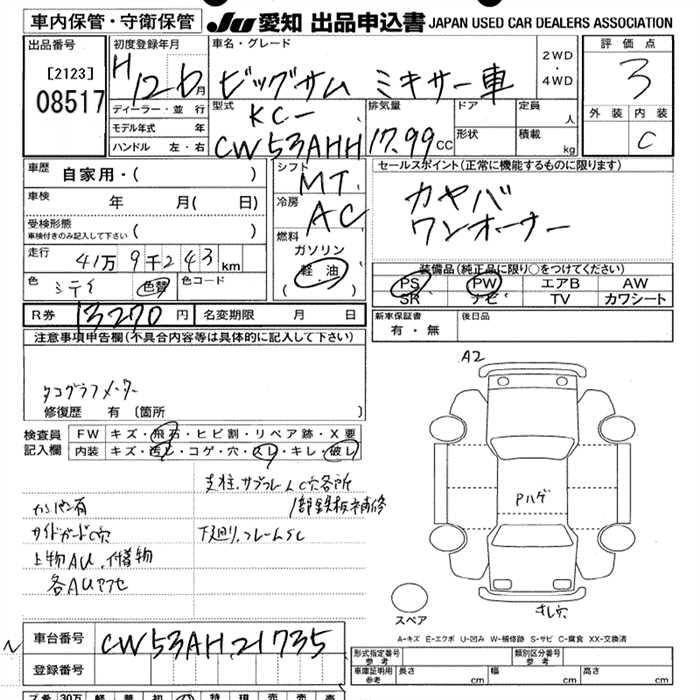 車内保管・守衛保管 JU愛知 出品申込書 JAPAN USED CAR DEALERS ASSOCIATION
出品番号
[2123]
08517
初度登録年月
H 12 6月
ディーラー・並行
モデル年式 年
ハンドル 左・右
車名・グレード
ビッグサム ミキサー車
2WD
・
4WD
型式
KC-
CW53AHH
排気量
17.99CC
ドア
形状
定員
人
積載
kg
評価点
3
外装 内装
C
車歴
自家用・( )
車検 年 月( 日)
受検形態
車検付きのみ記入して下さい ( )
走行
41万9千243km
色
色替
色コード
R券 13270円 名変期限 月 日
シフト
MT
冷房
AC
燃料
ガソリン
軽・油
( ・ )
セールスポイント(正常に機能するものに限ります)
カヤバ
ワンオーナー
装備品(純正品に限り○をつけてください)
PS PW エアB AW
SR ナビ TV カワシート
新車保証書
有・無
後日品
注意事項申告欄(不具合内容等は具体的に記入して下さい)
タコグラフメーター
修復歴 有 〔箇所 〕
検査員
記入欄
FW キズ・飛石・ヒビ割・リペア跡・X要
内装 キズ・汚レ・コゲ・穴・スレ・キレ・破レ
支柱、サブフレームC穴各所
1部鉄板補修
カンバン有
サイドガードC穴
下廻り、フレームSC
上物AU、付着物
各AUアクセ
A2
Pハゲ
スペア
さし穴
A-キズ E-エクボ U-凹み W-補修跡 S-サビ C-腐食 XX-交換済
車台番号 CW53AH 21735
登録番号
形式指定番号
参考
類別区分番号
参考
車庫証明用
参考
長さ cm 幅 cm 高さ cm